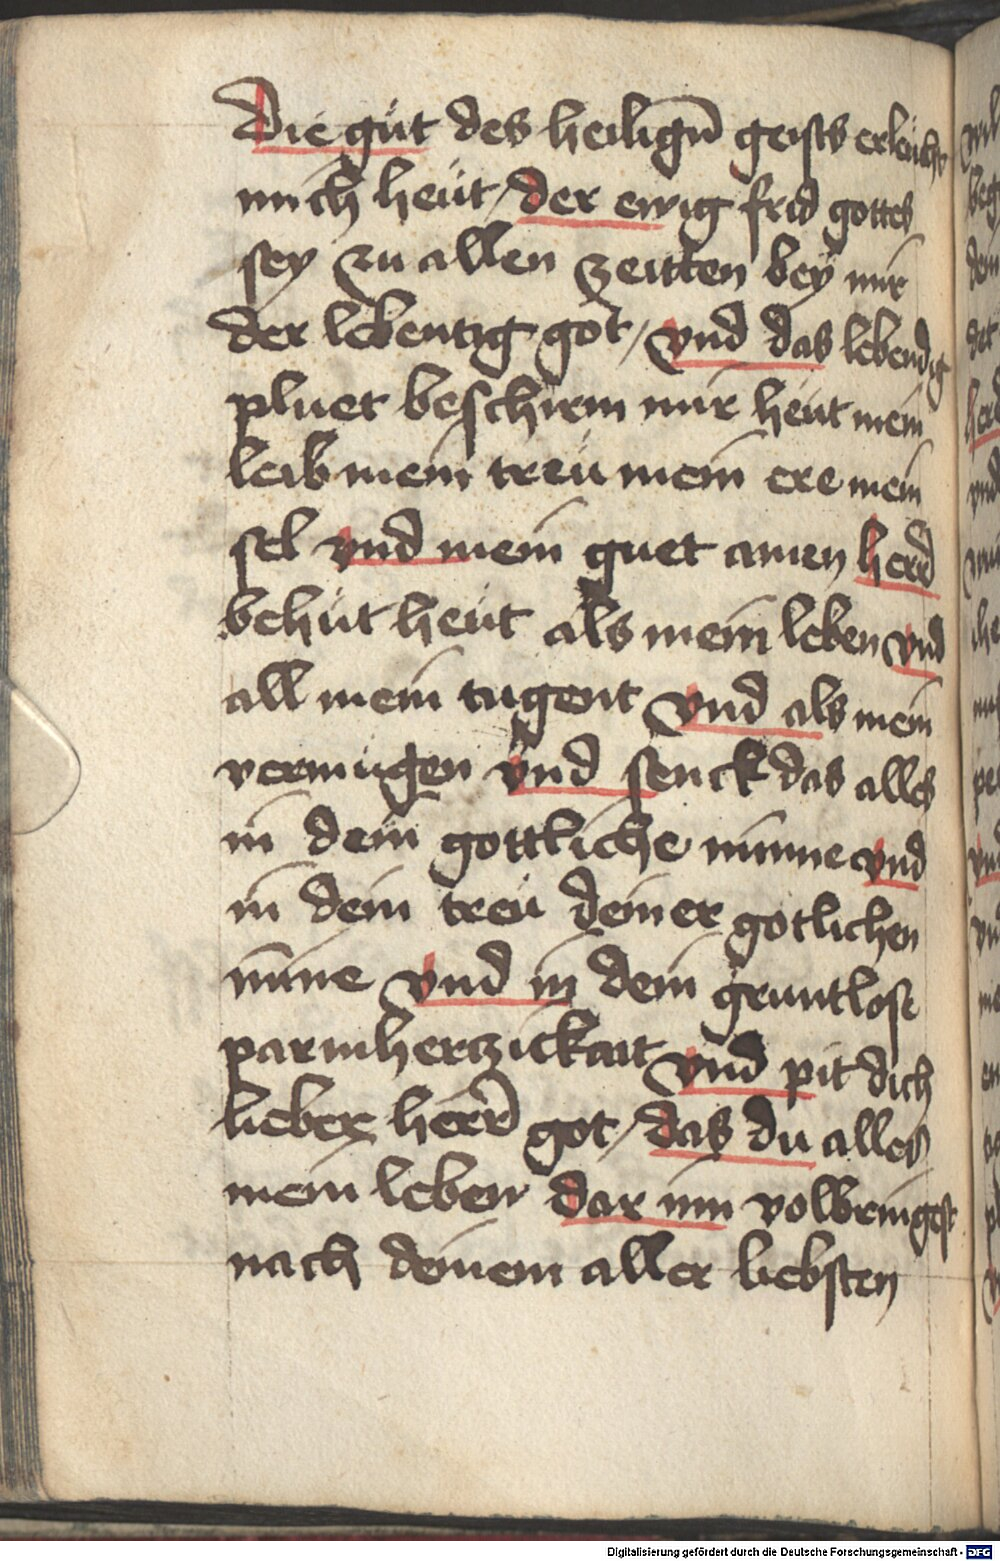 Die güt des heilign̄ geists erleücht
mich heüt / der ewig frid gottes
sey zu allen zeitten bey mir
der lebentig got / vnd das lebendig
pluet beschirm mir heüt mein
leib mein treü mein ere mein
sel vnd mein guet amen herr
behüt heüt als mein leben vnd
all mein tugent vnd als mein
vermügen vnd senck das alles
in dein gottliche minne vnd
in dein treü deiner gotlichen
mine vnd in dein gruntlose
parmherczickait vnd pit dich
lieber herr got / das du alles
mein leben dar inn volbringest
nach deinem aller liebsten
Digitalisierung gefördert durch die Deutsche Forschungsgemeinschaft - DFG